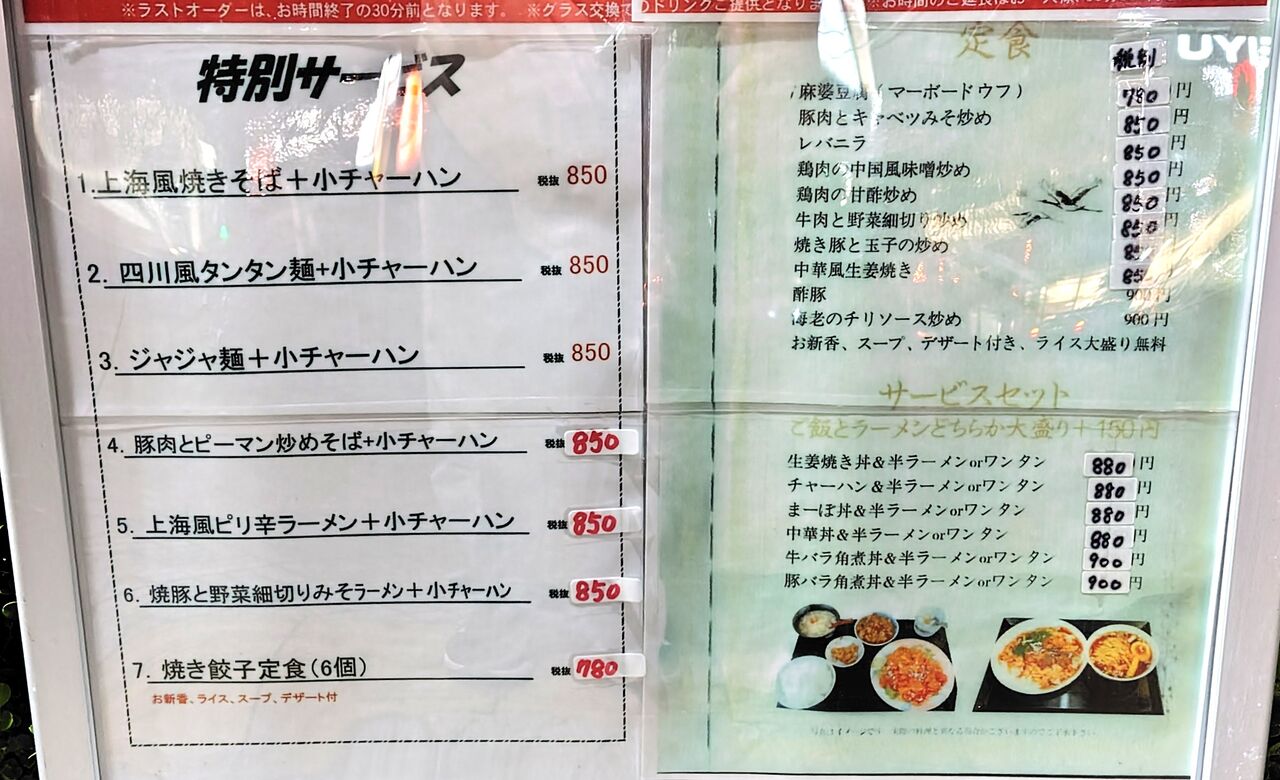 ※ラストオーダーは、お時間終了の30分前となります。 ※グラス交換で
のドリンクご提供となりま
特別サービス
1.上海風焼きそば＋小チャーハン 税抜 850
2. 四川風タンタン麺+小チャーハン 税抜 850
3. ジャジャ麺＋小チャーハン 税抜 850
4. 豚肉とピーマン炒めそば+小チャーハン 税抜 850
5. 上海風ピリ辛ラーメン＋小チャーハン 税抜 850
6. 焼豚と野菜細切りみそラーメン＋小チャーハン 税抜 850
7. 焼き餃子定食(6個) 税抜 780
お新香、ライス、スープ、デザート付
定食
税別
UY
麻婆豆腐(マーボードウフ) 780円
豚肉とキャベツみそ炒め 850円
レバニラ 850円
鶏肉の中国風味噌炒め 850円
鶏肉の甘酢炒め 850円
牛肉と野菜細切り炒め 850円
焼き豚と玉子の炒め
中華風生姜焼き 850
酢豚 900円
海老のチリソース炒め 900円
お新香、スープ、デザート付き、ライス大盛り無料
サービスセット
ご飯とラーメンどちらか大盛り+150円
生姜焼き丼＆半ラーメンorワンタン 880円
チャーハン＆半ラーメンorワンタン 880円
まーぼ丼＆半ラーメンorワンタン 880円
中華丼＆半ラーメンorワンタン 880円
牛バラ角煮丼＆半ラーメンorワンタン 900円
豚バラ角煮丼＆半ラーメンorワンタン 900円